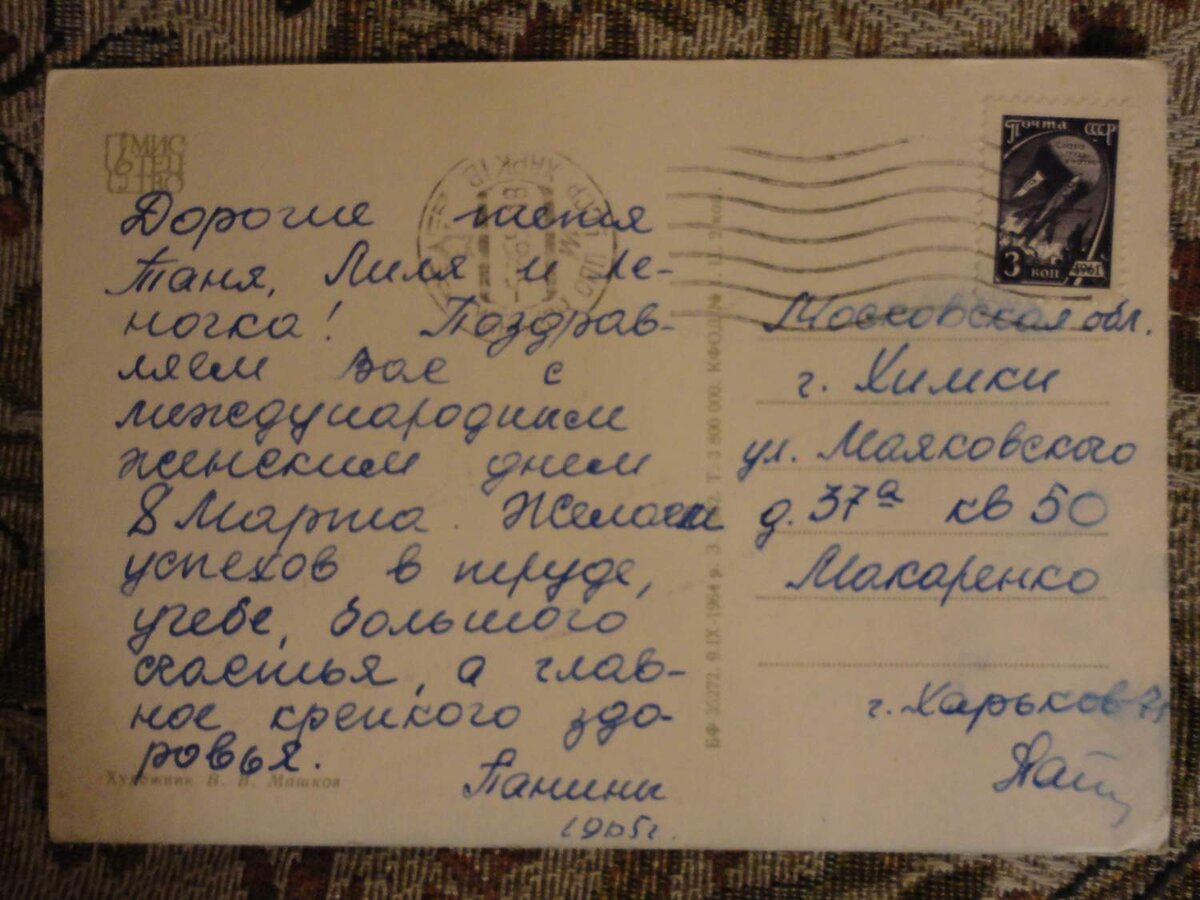 МИС
ТЕЦ
ТВО
Дорогие тетя
Таня, Лиля и Ле-
ночка! Поздрав-
ляем вас с
международным
женским днем
8 Марта. Желаем
успехов в труде,
учебе, большого
счастья, а глав-
ное крепкого здо-
ровья.
Панины
1965г.
Художник В. В. Машков
ХАРКІВ
БФ 30272. 9.IX-1964 р. З. Т. 3 800 000. КФОД
Почта СССР
3 коп
1961
Московская обл.
г. Химки
ул. Маяковского
д. 37а кв 50
Макаренко
г. Харьков